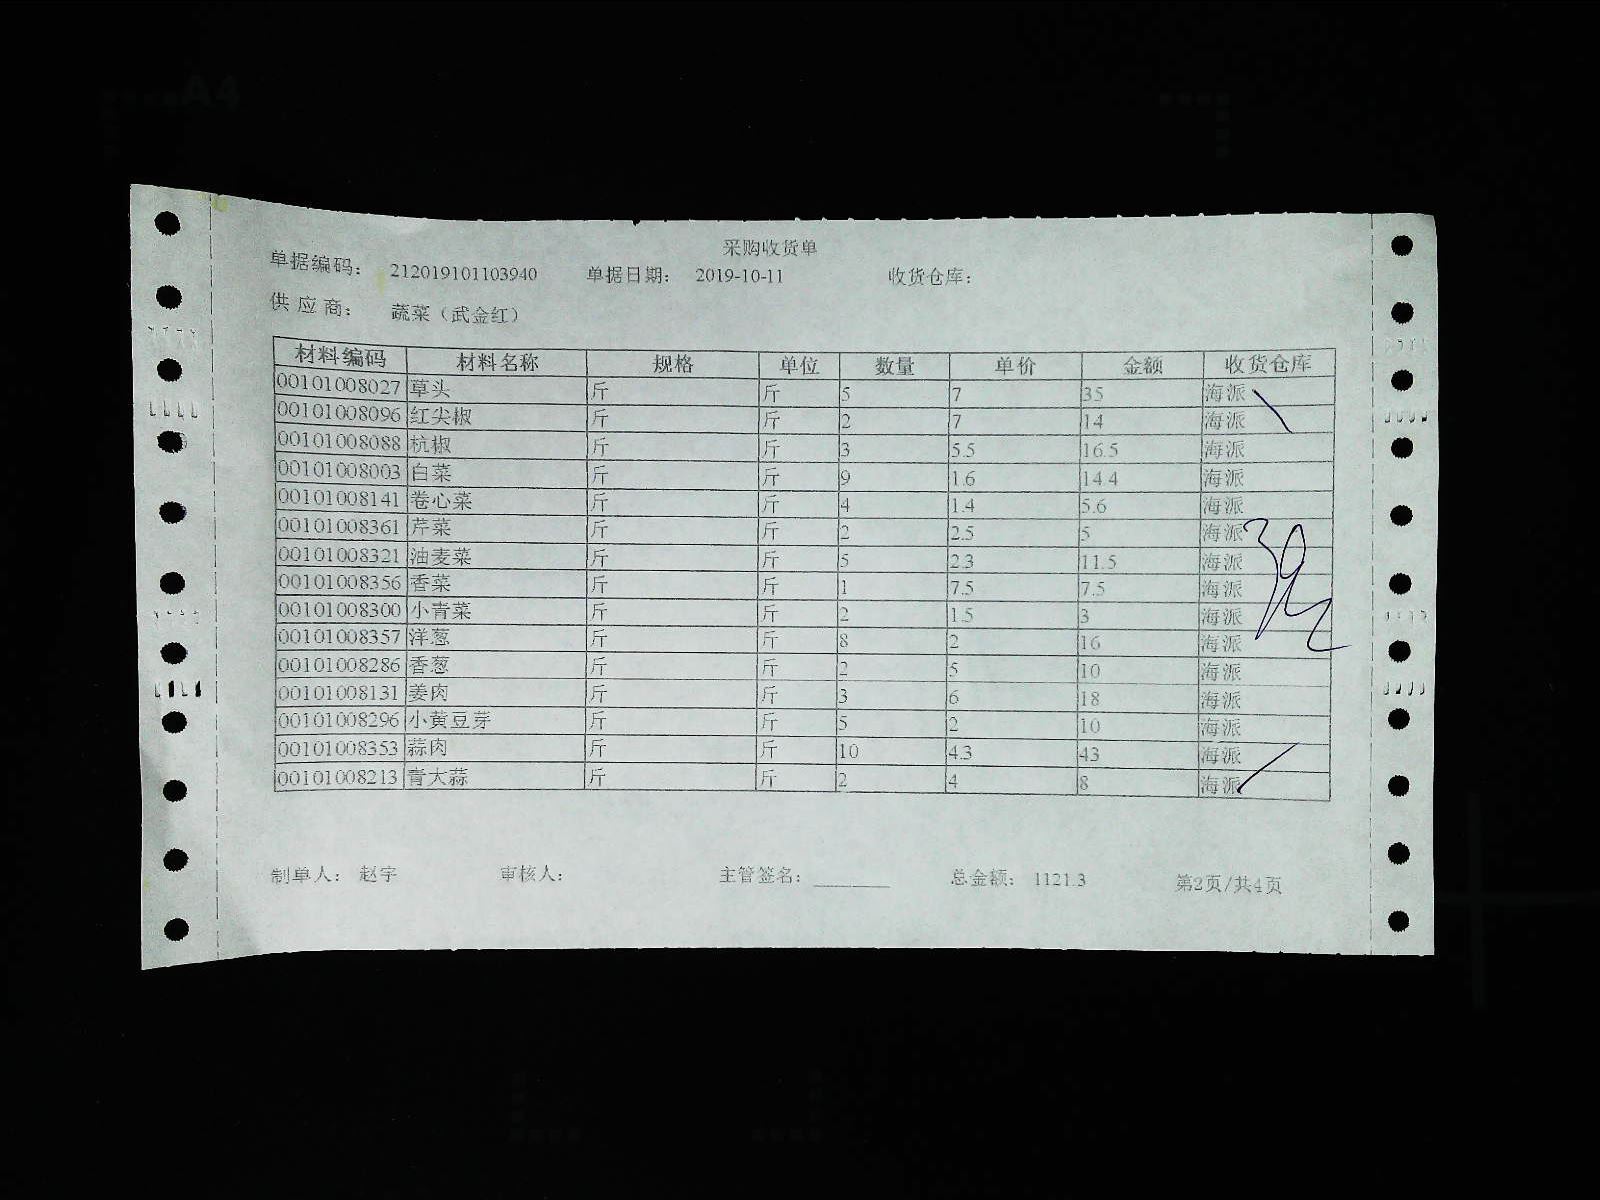 采购收货单
单据编码： 212019101103940 单据日期： 2019-10-11 收货仓库：
供应商： 蔬菜（武金红）
材料编码 材料名称 规格 单位 数量 单价 金额 收货仓库
00101008027 草头 斤 斤 5 7 35 海派
00101008096 红尖椒 斤 斤 2 7 14 海派
00101008088 杭椒 斤 斤 3 5.5 16.5 海派
00101008003 白菜 斤 斤 9 1.6 14.4 海派
00101008141 卷心菜 斤 斤 4 1.4 5.6 海派
00101008361 芹菜 斤 斤 2 2.5 5 海派
00101008321 油麦菜 斤 斤 5 2.3 11.5 海派
00101008356 香菜 斤 斤 1 7.5 7.5 海派
00101008300 小青菜 斤 斤 2 1.5 3 海派
00101008357 洋葱 斤 斤 8 2 16 海派
00101008286 香葱 斤 斤 2 5 10 海派
00101008131 姜肉 斤 斤 3 6 18 海派
00101008296 小黄豆芽 斤 斤 5 2 10 海派
00101008353 蒜肉 斤 斤 10 4.3 43 海派
00101008213 青大蒜 斤 斤 2 4 8 海派
制单人： 赵宇 审核人： 主管签名： 总金额： 1121.3 第2页/共4页